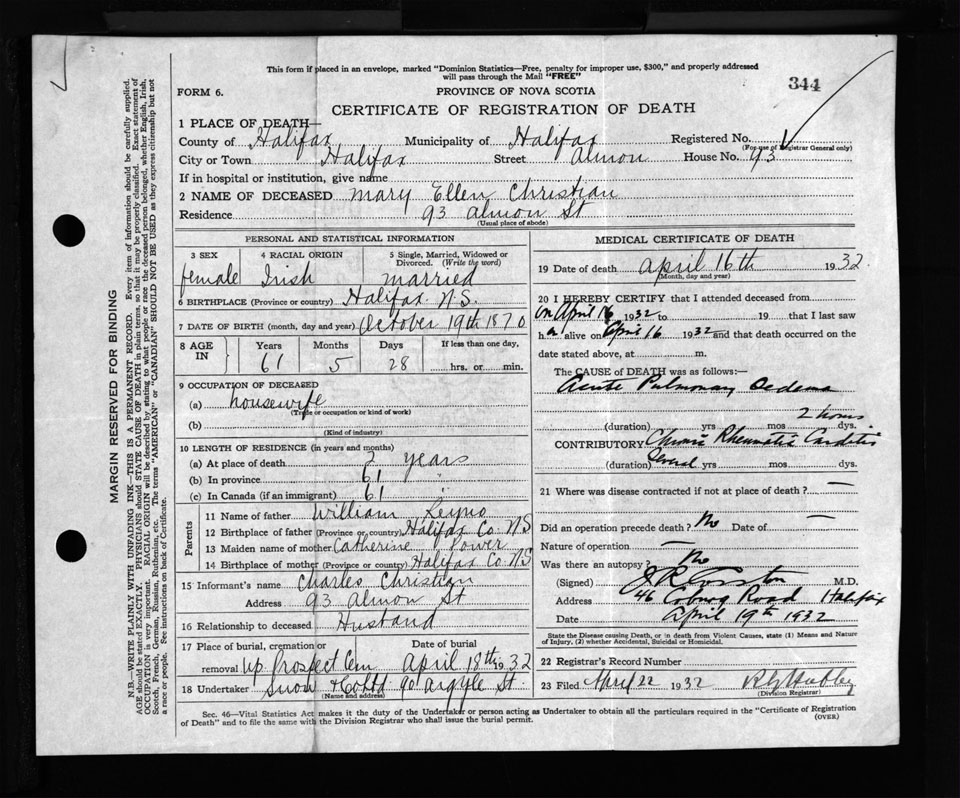 This form if placed in an envelope, marked "Dominion Statistics—Free, penalty for improper use, $300," and properly addressed
will pass through the Mail "FREE"
344
FORM 6.
PROVINCE OF NOVA SCOTIA
CERTIFICATE OF REGISTRATION OF DEATH
1 PLACE OF DEATH—
County of Halifax Municipality of Halifax Registered No.
(For use of Registrar General only)
City or Town Halifax Street Almon House No. 93
If in hospital or institution, give name
2 NAME OF DECEASED Mary Ellen Christian
Residence 93 Almon St
(Usual place of abode)
PERSONAL AND STATISTICAL INFORMATION
3 SEX 4 RACIAL ORIGIN 5 Single, Married, Widowed or Divorced. (Write the word)
female Irish married
6 BIRTHPLACE (Province or country) Halifax N.S.
7 DATE OF BIRTH (month, day and year) October 19th 1870
8 AGE IN Years Months Days If less than one day,
61 5 28 hrs. or min.
9 OCCUPATION OF DECEASED
(a) housewife
(Trade or occupation or kind of work)
(b)
(Kind of industry)
10 LENGTH OF RESIDENCE (in years and months)
(a) At place of death 2 years
(b) In province 61 "
(c) In Canada (if an immigrant) 61 "
Parents
11 Name of father William
12 Birthplace of father (Province or country) Halifax Co. N.S
13 Maiden name of mother Catherine Power
14 Birthplace of mother (Province or country) Halifax Co. N.S
15 Informant's name Charles Christian
Address 93 Almon St
16 Relationship to deceased Husband
17 Place of burial, cremation or removal Date of burial
Up. Prospect Cem April 18th 1932
18 Undertaker Snow & Co Ltd 90 Argyle St.
(Name and address)
MEDICAL CERTIFICATE OF DEATH
19 Date of death April 16th 1932
(Month, day and year)
20 I HEREBY CERTIFY that I attended deceased from
on April 16 1932 to 19 that I last saw
h er alive on April 16 1932 and that death occurred on the
date stated above, at m.
The CAUSE of DEATH was as follows:—
Acute Pulmonary Oedema
2 hours
(duration) yrs mos dys.
CONTRIBUTORY Chronic Rheumatic Carditis
(duration) Several yrs mos dys.
21 Where was disease contracted if not at place of death? —
Did an operation precede death? No Date of —
Nature of operation —
Was there an autopsy? No
(Signed) M.D.
Address 46 Coburg Road Halifax
Date April 19th 1932
State the Disease causing Death, or in death from Violent Causes, state (1) Means and Nature
of Injury, (2) whether Accidental, Suicidal or Homicidal.
22 Registrar's Record Number
23 Filed April 22 1932
(Division Registrar)
Sec. 46—Vital Statistics Act makes it the duty of the Undertaker or person acting as Undertaker to obtain all the particulars required in the "Certificate of Registration
of Death" and to file the same with the Division Registrar who shall issue the burial permit.
(OVER)
MARGIN RESERVED FOR BINDING
N.B.—WRITE PLAINLY WITH UNFADING INK—THIS IS A PERMANENT RECORD. Every item of information should be carefully supplied.
AGE should be stated EXACTLY. PHYSICIANS should STATE CAUSE OF DEATH in plain terms, so that it may be properly classified. Exact statement of
OCCUPATION is very important. RACIAL ORIGIN will be described by stating to what people or race the deceased person belonged, whether English, Irish,
Scotch, French, German, Russian, Ruthenian, etc. The terms "AMERICAN" or "CANADIAN" SHOULD NOT BE USED as they express citizenship but not
a race or people. See instructions on back of Certificate.